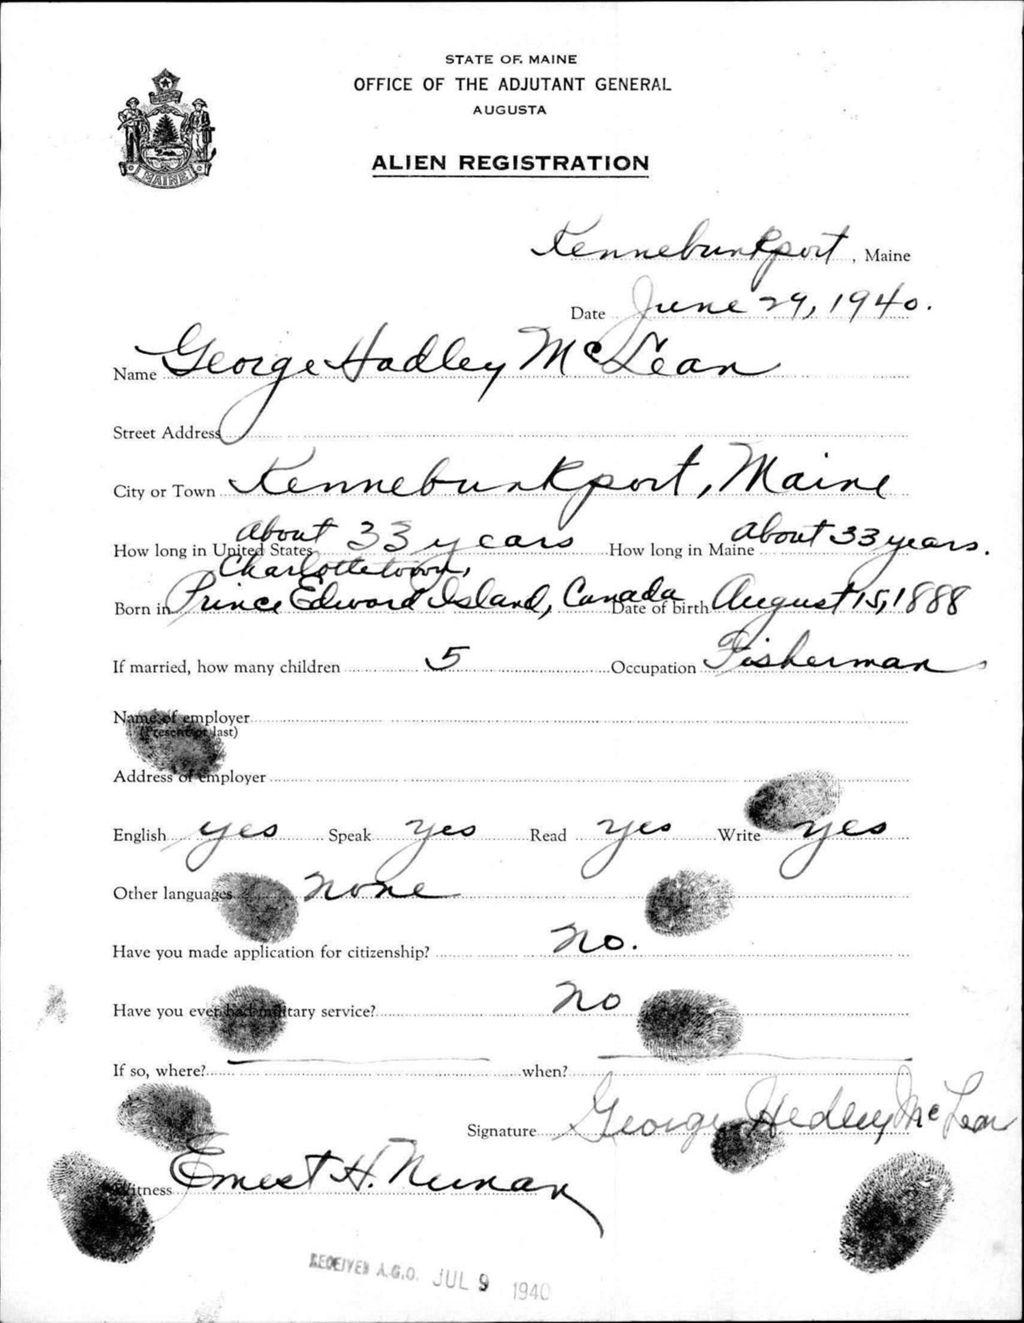 STATE OF MAINE
OFFICE OF THE ADJUTANT GENERAL
AUGUSTA
MAINE
ALIEN REGISTRATION
Kennebunkport, Maine
Date June 29, 1940.
Name George Hadley McLean
Street Address
City or Town Kennebunkport, Maine
How long in United States about 33 years How long in Maine about 33 years.
Charlottetown,
Born in Prince Edward Island, Canada Date of birth August 15, 1888
If married, how many children 5 Occupation Fisherman
Name of employer
(Present or last)
Address of employer
English yes Speak yes Read yes Write yes
Other languages none
Have you made application for citizenship? No.
Have you ever had military service? No
If so, where? when?
Signature George Hedley McLean
Witness Ernest H. Nunan
RECEIVED A.G.O. JUL 9 1940